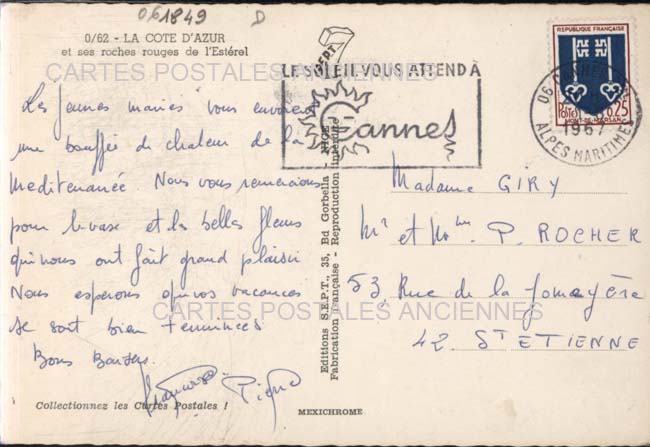 061849
D
0/62 - LA COTE D'AZUR
et ses roches rouges de l'Estérel
CARTES POSTALES ANCIENNES
Les jeunes mariés vous envoient
une bouffée de chaleur de la
mediterrannée. Nous vous remercions
pour le vase et les belles fleurs
qui nous ont fait grand plaisir
Nous esperons que vos vacances
se sont bien terminées
Bons Baisers.
Collectionnez les Cartes Postales !
Editions S.E.P.T., 35, Bd Gorbella - NICE
Fabrication Française - Reproduction interdite
SEPT
MEXICHROME
LE SOLEIL VOUS ATTEND À
Cannes
REPUBLIQUE FRANÇAISE
POSTES 0,25
MONT-DE-MARSAN
06 CANNES
1967
ALPES MARITIMES
Madame GIRY
Mr et Mme P. ROCHER
53, Rue de la
42 St ETIENNE
CARTES POSTALES ANCIENNES